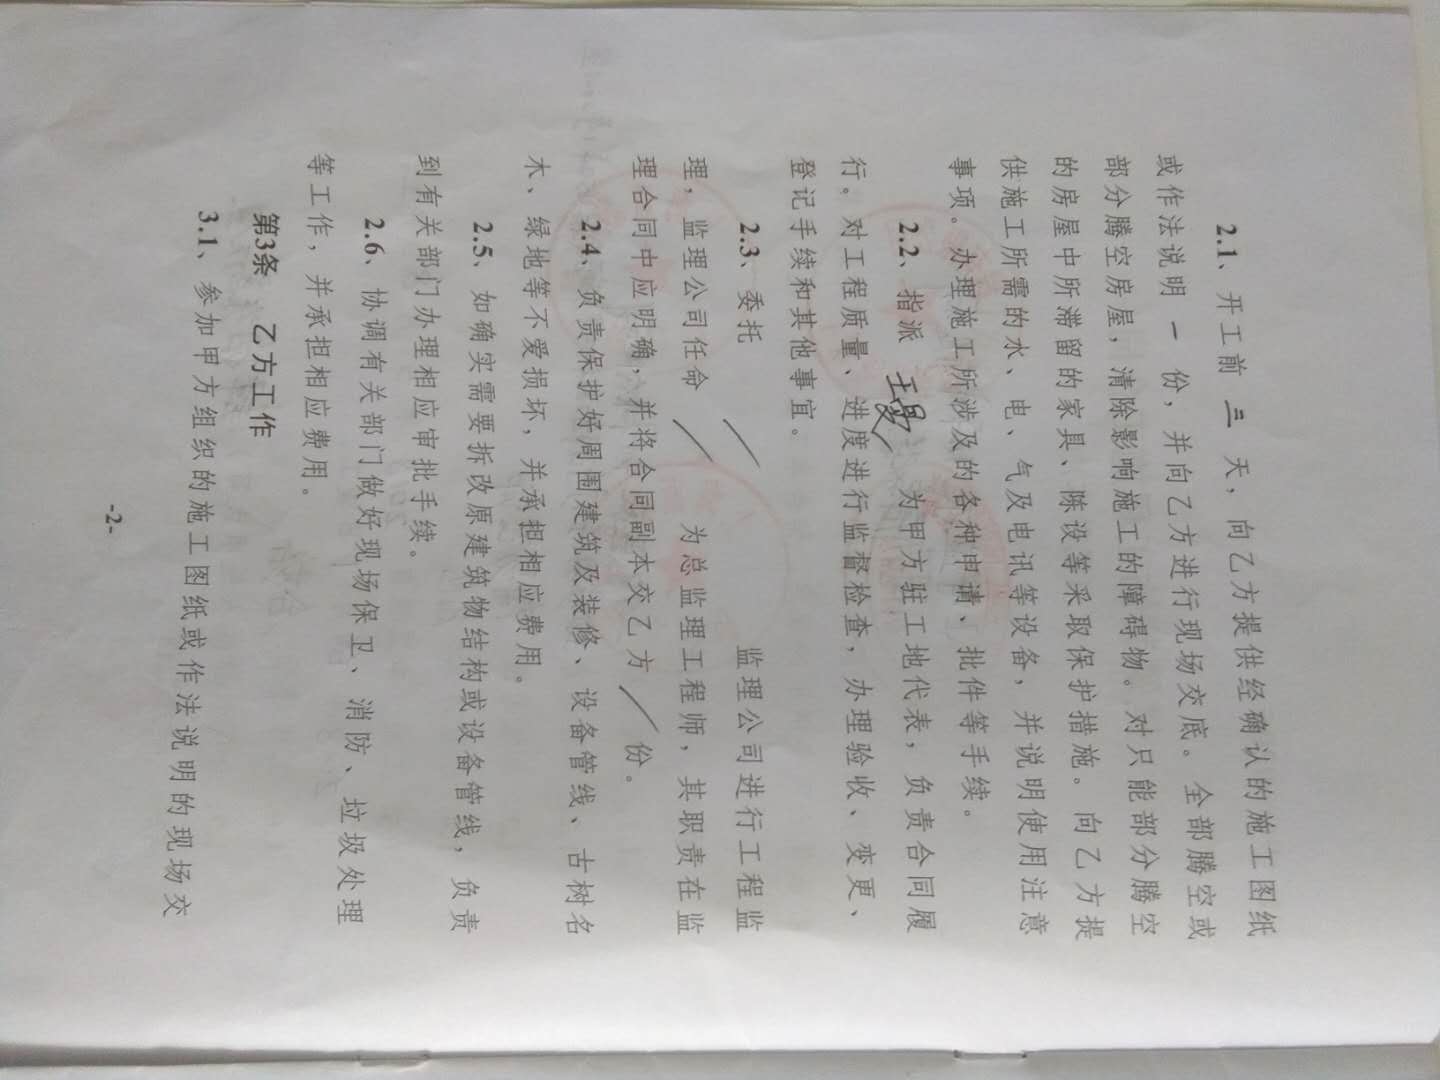 2.1、开工前 三 天，向乙方提供经确认的施工图纸
或作法说明 一 份，并向乙方进行现场交底。全部腾空或
部分腾空房屋，清除影响施工的障碍物。对只能部分腾空
的房屋中所滞留的家具、陈设等采取保护措施。向乙方提
供施工所需的水、电、气及电讯等设备，并说明使用注意
事项。办理施工所涉及的各种申请、批件等手续。
2.2、指派 为甲方驻工地代表，负责合同履
行。对工程质量、进度进行监督检查，办理验收、变更、
登记手续和其他事宜。
2.3、委托 / 监理公司进行工程监
理，监理公司任命 / 为总监理工程师，其职责在监
理合同中应明确，并将合同副本交乙方 / 份。
2.4、负责保护好周围建筑及装修、设备管线、古树名
木、绿地等不爱损坏，并承担相应费用。
2.5、如确实需要拆改原建筑物结构或设备管线，负责
到有关部门办理相应审批手续。
2.6、协调有关部门做好现场保卫、消防、垃圾处理
等工作，并承担相应费用。
第3条 乙方工作
3.1、参加甲方组织的施工图纸或作法说明的现场交
-2-